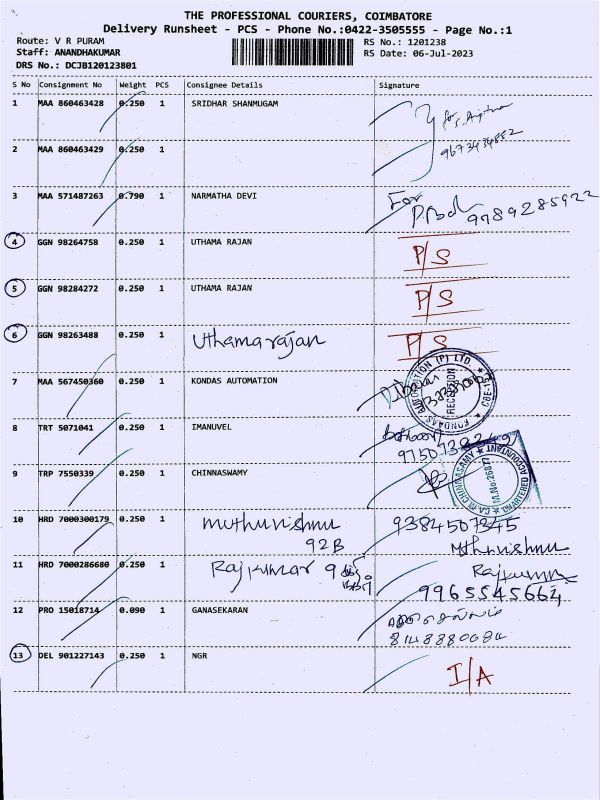 THE PROFESSIONAL COURIERS, COIMBATORE
Delivery Runsheet - PCS - Phone No.:0422-3505555 - Page No.:1
Route: V R PURAM RS No.: 1201238
Staff: ANANDHAKUMAR RS Date: 06-Jul-2023
DRS No.: DCJB120123801
S No Consignment No Weight PCS Consignee Details Signature
1 MAA 860463428 0.250 1 SRIDHAR SHANMUGAM
9673434882
2 MAA 860463429 0.250 1
3 MAA 571487263 0.790 1 NARMATHA DEVI For
9789285922
4 GGN 98264758 0.250 1 UTHAMA RAJAN P/S
5 GGN 98284272 0.250 1 UTHAMA RAJAN P/S
6 GGN 98263488 0.250 1 Uthama rajan P/S
7 MAA 567450360 0.250 1 KONDAS AUTOMATION
AUTOMATION (P) LTD. ★ CBE-15 ★
RECEPTION
8 TRT 5071041 0.250 1 IMANUVEL
9 TRP 7550339 0.250 1 CHINNASWAMY
CHARTERED ACCOUNTANT
10 HRD 7000300179 0.250 1 muthuvishnu 9384507245
92B Mthuvishnu
11 HRD 7000286680 0.250 1 Rajkumar Rajkumar
9965545664
12 PRO 15018714 0.090 1 GANASEKARAN
8148880684
13 DEL 901227143 0.250 1 NGR I/A